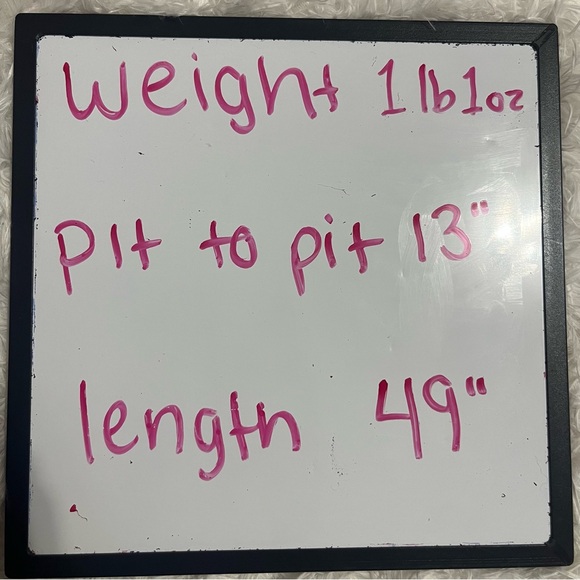 Weight 1 lb 1oz
pit to pit 13"
length 49"